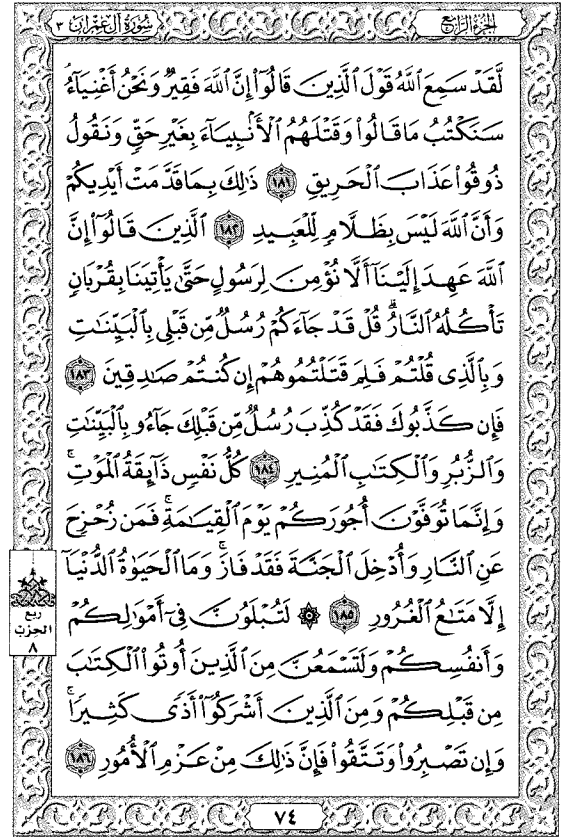 سُورَةُ آلِ عِمْرَانَ ٣
الجُزْءُ الرَّابِعُ
لَّقَدْ سَمِعَ ٱللَّهُ قَوْلَ ٱلَّذِينَ قَالُوٓا۟ إِنَّ ٱللَّهَ فَقِيرٌ وَنَحْنُ أَغْنِيَآءُ
سَنَكْتُبُ مَا قَالُوا۟ وَقَتْلَهُمُ ٱلْأَنۢبِيَآءَ بِغَيْرِ حَقٍّ وَنَقُولُ
ذُوقُوا۟ عَذَابَ ٱلْحَرِيقِ ١٨١ ذَٰلِكَ بِمَا قَدَّمَتْ أَيْدِيكُمْ
وَأَنَّ ٱللَّهَ لَيْسَ بِظَلَّامٍ لِّلْعَبِيدِ ١٨٢ ٱلَّذِينَ قَالُوٓا۟ إِنَّ
ٱللَّهَ عَهِدَ إِلَيْنَآ أَلَّا نُؤْمِنَ لِرَسُولٍ حَتَّىٰ يَأْتِيَنَا بِقُرْبَانٍ
تَأْكُلُهُ ٱلنَّارُ ۗ قُلْ قَدْ جَآءَكُمْ رُسُلٌ مِّن قَبْلِى بِٱلْبَيِّنَٰتِ
وَبِٱلَّذِى قُلْتُمْ فَلِمَ قَتَلْتُمُوهُمْ إِن كُنتُمْ صَٰدِقِينَ ١٨٣
فَإِن كَذَّبُوكَ فَقَدْ كُذِّبَ رُسُلٌ مِّن قَبْلِكَ جَآءُو بِٱلْبَيِّنَٰتِ
وَٱلزُّبُرِ وَٱلْكِتَٰبِ ٱلْمُنِيرِ ١٨٤ كُلُّ نَفْسٍ ذَآئِقَةُ ٱلْمَوْتِ ۗ
وَإِنَّمَا تُوَفَّوْنَ أُجُورَكُمْ يَوْمَ ٱلْقِيَٰمَةِ ۖ فَمَن زُحْزِحَ
عَنِ ٱلنَّارِ وَأُدْخِلَ ٱلْجَنَّةَ فَقَدْ فَازَ ۗ وَمَا ٱلْحَيَوٰةُ ٱلدُّنْيَآ
إِلَّا مَتَٰعُ ٱلْغُرُورِ ١٨٥ ۞ لَتُبْلَوُنَّ فِىٓ أَمْوَٰلِكُمْ
وَأَنفُسِكُمْ وَلَتَسْمَعُنَّ مِنَ ٱلَّذِينَ أُوتُوا۟ ٱلْكِتَٰبَ
مِن قَبْلِكُمْ وَمِنَ ٱلَّذِينَ أَشْرَكُوٓا۟ أَذًى كَثِيرًا ۚ
وَإِن تَصْبِرُوا۟ وَتَتَّقُوا۟ فَإِنَّ ذَٰلِكَ مِنْ عَزْمِ ٱلْأُمُورِ ١٨٦
ربع
الحزب
٨
٧٤